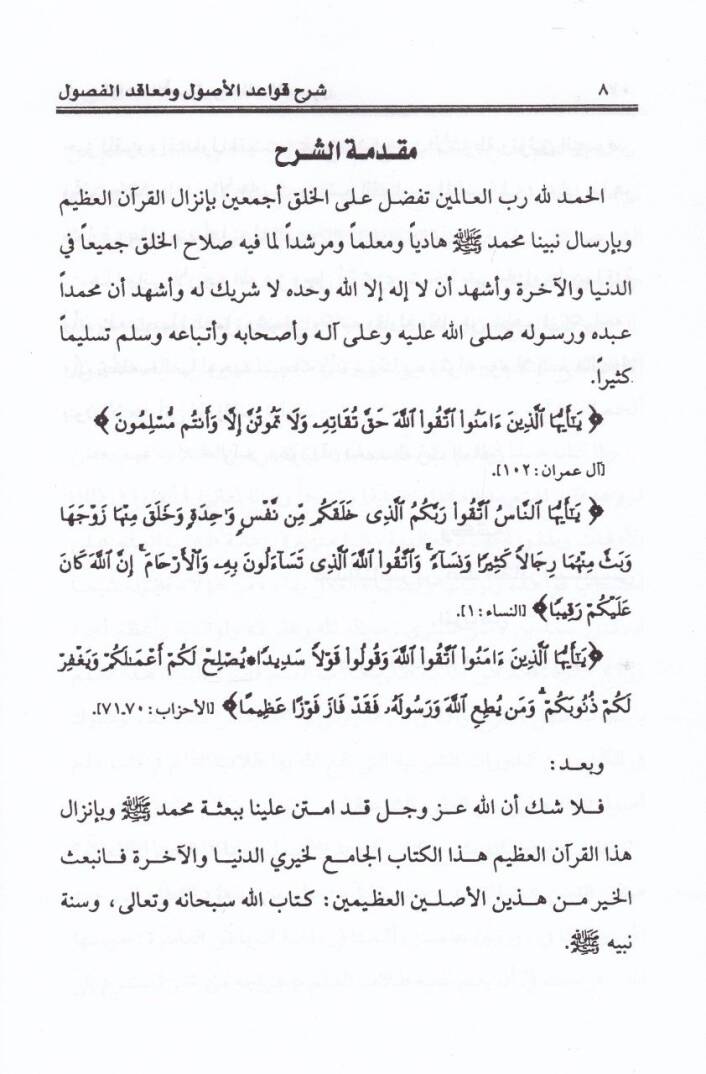 ٨ شرح قواعد الأصول ومعاقد الفصول
مقدمة الشرح
الحمد لله رب العالمين تفضل على الخلق أجمعين بإنزال القرآن العظيم
وبإرسال نبينا محمد ﷺ هادياً ومعلماً ومرشداً لما فيه صلاح الخلق جميعاً في
الدنيا والآخرة وأشهد أن لا إله إلا الله وحده لا شريك له وأشهد أن محمداً
عبده ورسوله صلى الله عليه وعلى آله وأصحابه وأتباعه وسلم تسليماً
كثيراً.
﴿ يَٰٓأَيُّهَا ٱلَّذِينَ ءَامَنُوا۟ ٱتَّقُوا۟ ٱللَّهَ حَقَّ تُقَاتِهِۦ وَلَا تَمُوتُنَّ إِلَّا وَأَنتُم مُّسْلِمُونَ ﴾
[آل عمران: ١٠٢].
﴿ يَٰٓأَيُّهَا ٱلنَّاسُ ٱتَّقُوا۟ رَبَّكُمُ ٱلَّذِى خَلَقَكُم مِّن نَّفْسٍ وَٰحِدَةٍ وَخَلَقَ مِنْهَا زَوْجَهَا
وَبَثَّ مِنْهُمَا رِجَالًا كَثِيرًا وَنِسَآءً ۚ وَٱتَّقُوا۟ ٱللَّهَ ٱلَّذِى تَسَآءَلُونَ بِهِۦ وَٱلْأَرْحَامَ ۚ إِنَّ ٱللَّهَ كَانَ
عَلَيْكُمْ رَقِيبًا﴾ [النساء: ١].
﴿يَٰٓأَيُّهَا ٱلَّذِينَ ءَامَنُوا۟ ٱتَّقُوا۟ ٱللَّهَ وَقُولُوا۟ قَوْلًا سَدِيدًا*يُصْلِحْ لَكُمْ أَعْمَٰلَكُمْ وَيَغْفِرْ
لَكُمْ ذُنُوبَكُمْ ۗ وَمَن يُطِعِ ٱللَّهَ وَرَسُولَهُۥ فَقَدْ فَازَ فَوْزًا عَظِيمًا﴾ [الأحزاب: ٧١،٧٠].
وبعد:
فلا شك أن الله عز وجل قد امتن علينا ببعثة محمد ﷺ وبإنزال
هذا القرآن العظيم هذا الكتاب الجامع لخيري الدنيا والآخرة فانبعث
الخير من هذين الأصلين العظيمين: كتاب الله سبحانه وتعالى، وسنة
نبيه ﷺ.